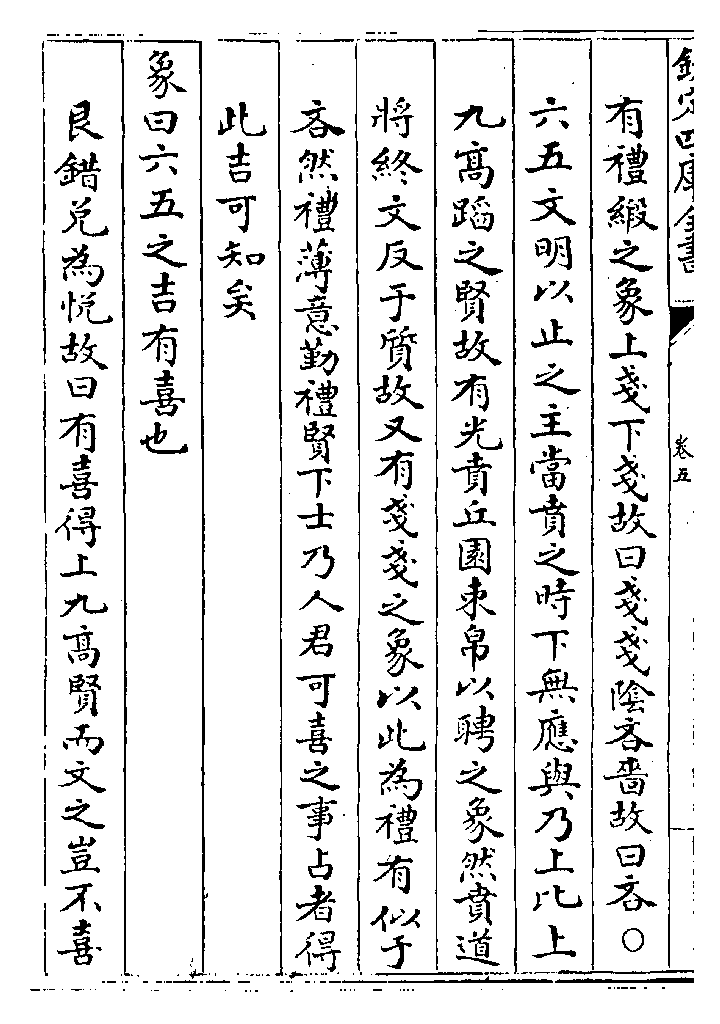 欽定四庫全書
卷五
有禮緞之象上戔下戔故曰戔戔陰吝嗇故曰吝○
六五文明以止之主當賁之時下無應與乃上比上
九高蹈之賢故有光賁丘園束帛以聘之象然賁道
將終文反于質故又有戔戔之象以此為禮有似于
吝然禮薄意勤禮賢下士乃人君可喜之事占者得
此吉可知矣
象曰六五之吉有喜也
艮錯兌為悅故曰有喜得上九高賢而文之豈不喜